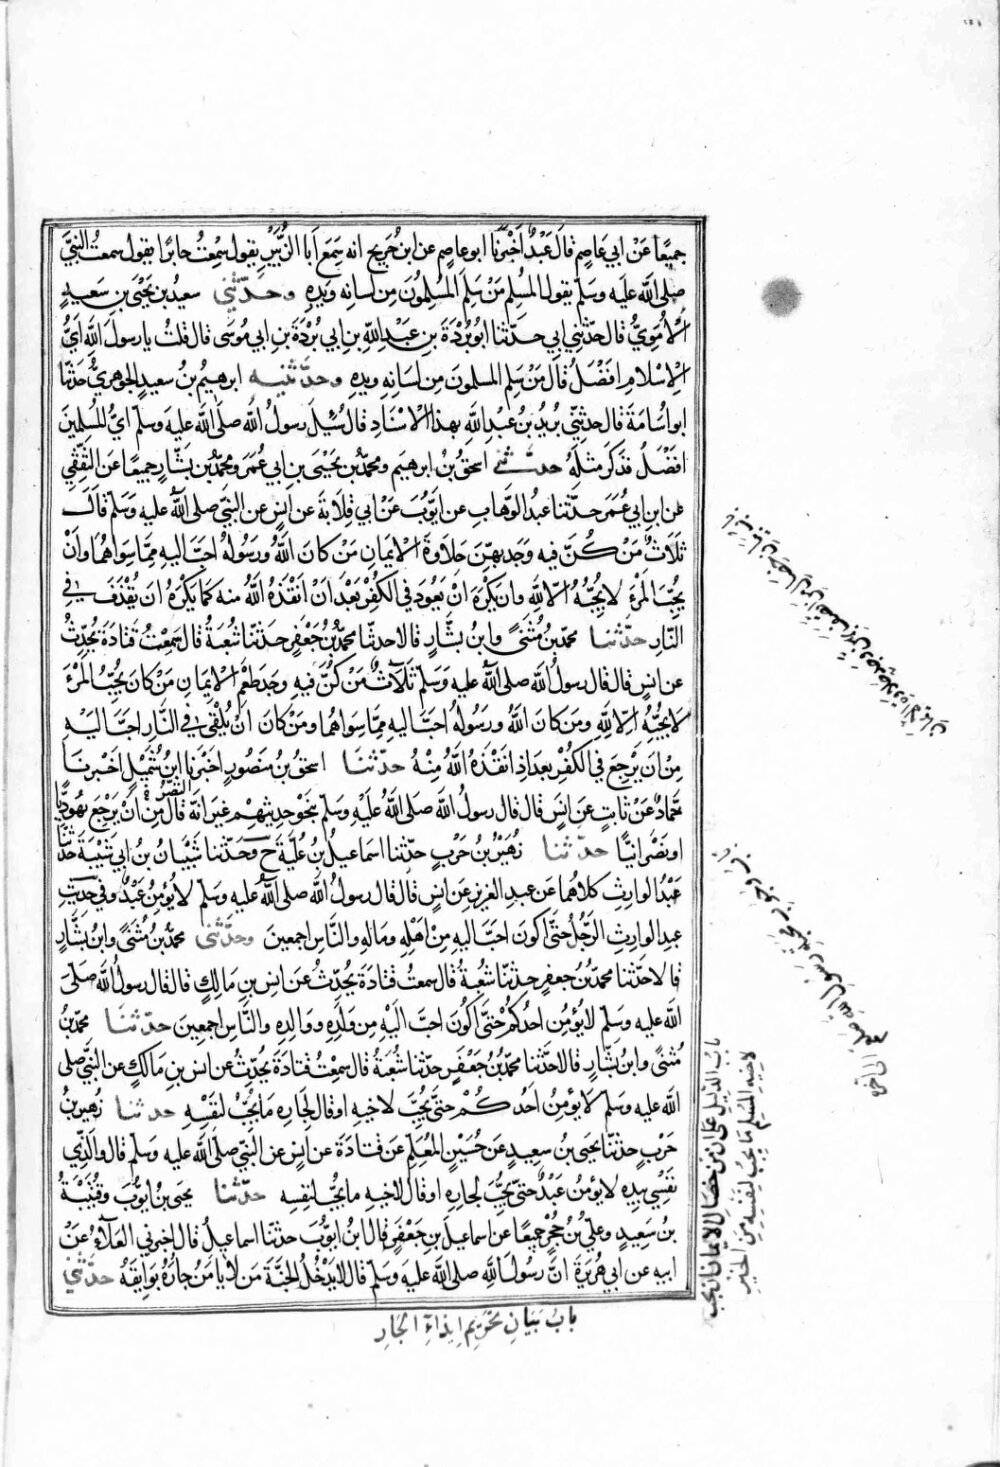 جميعًا عن ابي عاصم قال عبدٌ اخبرنا ابو عاصم عن ابن جريج انه سمع ابا الزُّبير يقول سمعتُ جابرًا يقول سمعتُ النبيَّ
صلى الله عليه وسلم يقول المسلم مَن سلم المسلمون من لسانه ويده وحدَّثني سعيدُ بن يحيى بن سعيدٍ
الأمويُّ قال حدّثني ابي حدّثنا ابو بُرْدَة بن عبد الله بن ابي بُرْدَة بن ابي موسى قال قلتُ يا رسول الله ايُّ
الإسلام افضلُ قال مَن سلم المسلمون من لسانه ويده وحدّثنيه ابرهيمُ بنُ سعيدٍ الجوهريُّ حدثنا
ابو اسامة قال حدثني بُرَيْد بنُ عبد الله بهذا الإسناد قال سُئِلَ رسولُ الله صلى الله عليه وسلم ايُّ المسلمين
افضلُ فذكر مثله حدثنا اسحقُ بنُ ابرهيم ومحمدُ بن يحيى بن ابي عُمَر ومحمدُ بن بشّار جميعًا عن الثقفي
عن ابن ابي عُمَر حدثنا عبدُ الوهاب عن ايّوبَ عن ابي قِلابة عن انسٍ عن النبي صلى الله عليه وسلم قال
ثلاثٌ من كنَّ فيه وجد بهنّ حلاوة الإيمان من كان اللهُ ورسولهُ احبَّ اليه مما سواهما وان
يحبَّ المرءَ لا يحبُّهُ الّا لله وان يكره ان يعود في الكفر بعد ان انقذه اللهُ منه كما يكره ان يُقذف في
النّار حدّثنا محمدُ بن مُثنّى وابنُ بشّار قالا حدثنا محمدُ بن جعفرٍ حدّثنا شعبةُ قال سمعتُ قتادةَ يُحدّثُ
عن انسٍ قال قال رسولُ الله صلى الله عليه وسلم ثلاثٌ من كنَّ فيه وجد طعم الإيمان من كان يحبُّ المرءَ
لا يحبُّهُ الّا لله ومن كان اللهُ ورسولهُ احبَّ اليه مما سواهما ومن كان ان يُلقى في النّار احبَّ اليه
من ان يرجع في الكفر بعد اذ انقذه اللهُ منه حدّثنا اسحقُ بن منصورٍ اخبرنا ابن شميلٍ اخبرنا
النضر
حمّادٌ عن ثابتٍ عن انسٍ قال قال رسولُ الله صلى الله عليه وسلم بنحو حديثهم غير انّه قال من ان يرجع يهوديًّا
او نصرانيًّا حدّثنا زُهيرُ بنُ حربٍ حدّثنا اسماعيلُ بنُ عُليّةَ ح وحدّثنا شيبانُ بن ابي شيبة حدّثنا
عبدُ الوارث كلاهما عن عبد العزيز عن انسٍ قال قال رسولُ الله صلى الله عليه وسلم لا يؤمنُ عبدٌ وفي حديث
عبد الوارث الرّجلُ حتّى اكون احبَّ اليه من اهله وماله والنّاس اجمعين وحدّثني محمدُ بن مثنّى وابنُ بشّار
قالا حدّثنا محمدُ بن جعفرٍ حدّثنا شعبةُ قال سمعتُ قتادةَ يحدّثُ عن انس بن مالكٍ قال قال رسولُ الله صلى
الله عليه وسلم لا يؤمنُ احدُكم حتّى اكون احبَّ اليه من ولده ووالده والنّاس اجمعين حدّثنا محمدُ بن
مُثنّى وابنُ بشّارٍ قالا حدّثنا محمدُ بن جعفرٍ حدّثنا شعبةُ قال سمعتُ قتادةَ يُحدّثُ عن انس بن مالكٍ عن النبي صلى
الله عليه وسلم لا يؤمنُ احدُكم حتّى يحبَّ لاخيه او قال لجاره ما يحبُّ لنفسه حدثنا زُهيرُ بن
حربٍ حدّثنا يحيى بن سعيدٍ عن حُسينٍ المعلّم عن قتادة عن انسٍ عن النبي صلى الله عليه وسلم قال والّذي
نفسي بيده لا يؤمنُ عبدٌ حتّى يحبَّ لجاره او قال لاخيه ما يحبُّ لنفسه حدّثنا يحيى بن ايّوب وقتيبة
بن سعيدٍ وعليُّ بن حُجرٍ جميعًا عن اسماعيل بن جعفرٍ قال ابنُ ايّوبَ حدثنا اسماعيلُ قال اخبرني العلاءُ عن
ابيه عن ابي هُريرة انّ رسول الله صلى الله عليه وسلم قال لا يدخلُ الجنّة من لا يأمن جارُهُ بوايقهُ حدّثني
بابُ بيان تحريم ايذاء الجار
باب الدّليل على ان من خصال الايمان ان يحب
لاخيه المسلم ما يحب لنفسه من الخير
باب وجوب محبّة رسول الله صلعم